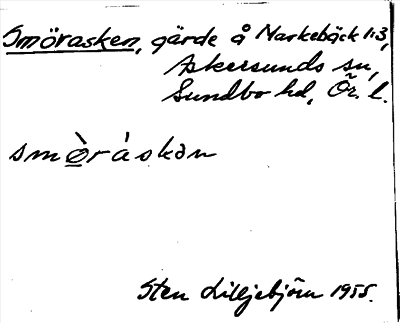 Smörasken, gärde å Markebäck 1:3,
Askersunds sn,
Sundbo hd, Ör. l.
smø̀ràskən
Sten Liljebjörn 1955.